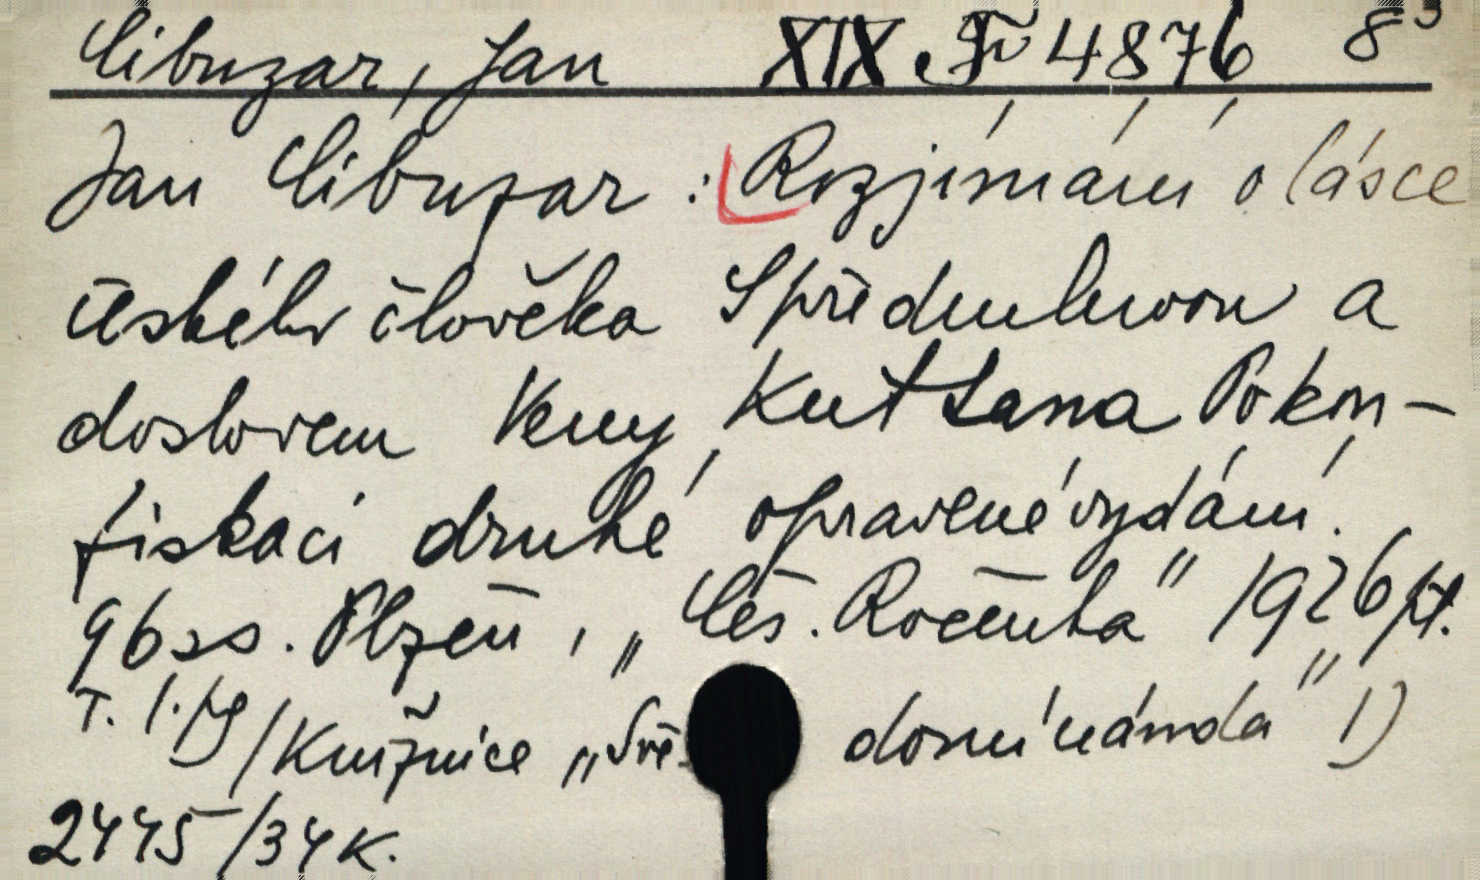 Cibuzar, Jan XIX F 4876 8°
Jan Cibuzar: Rozjímání o lásce
českého člověka S předmluvou a
doslovem Veny Kuttana Pokon-
fiskaci druhé opravené vydání.
96 ss. Plzeň, „Čes. Ročenka" 1926 pt.
T. 1./Knižnice „Svě domí národa" 1)
2445/34 K.